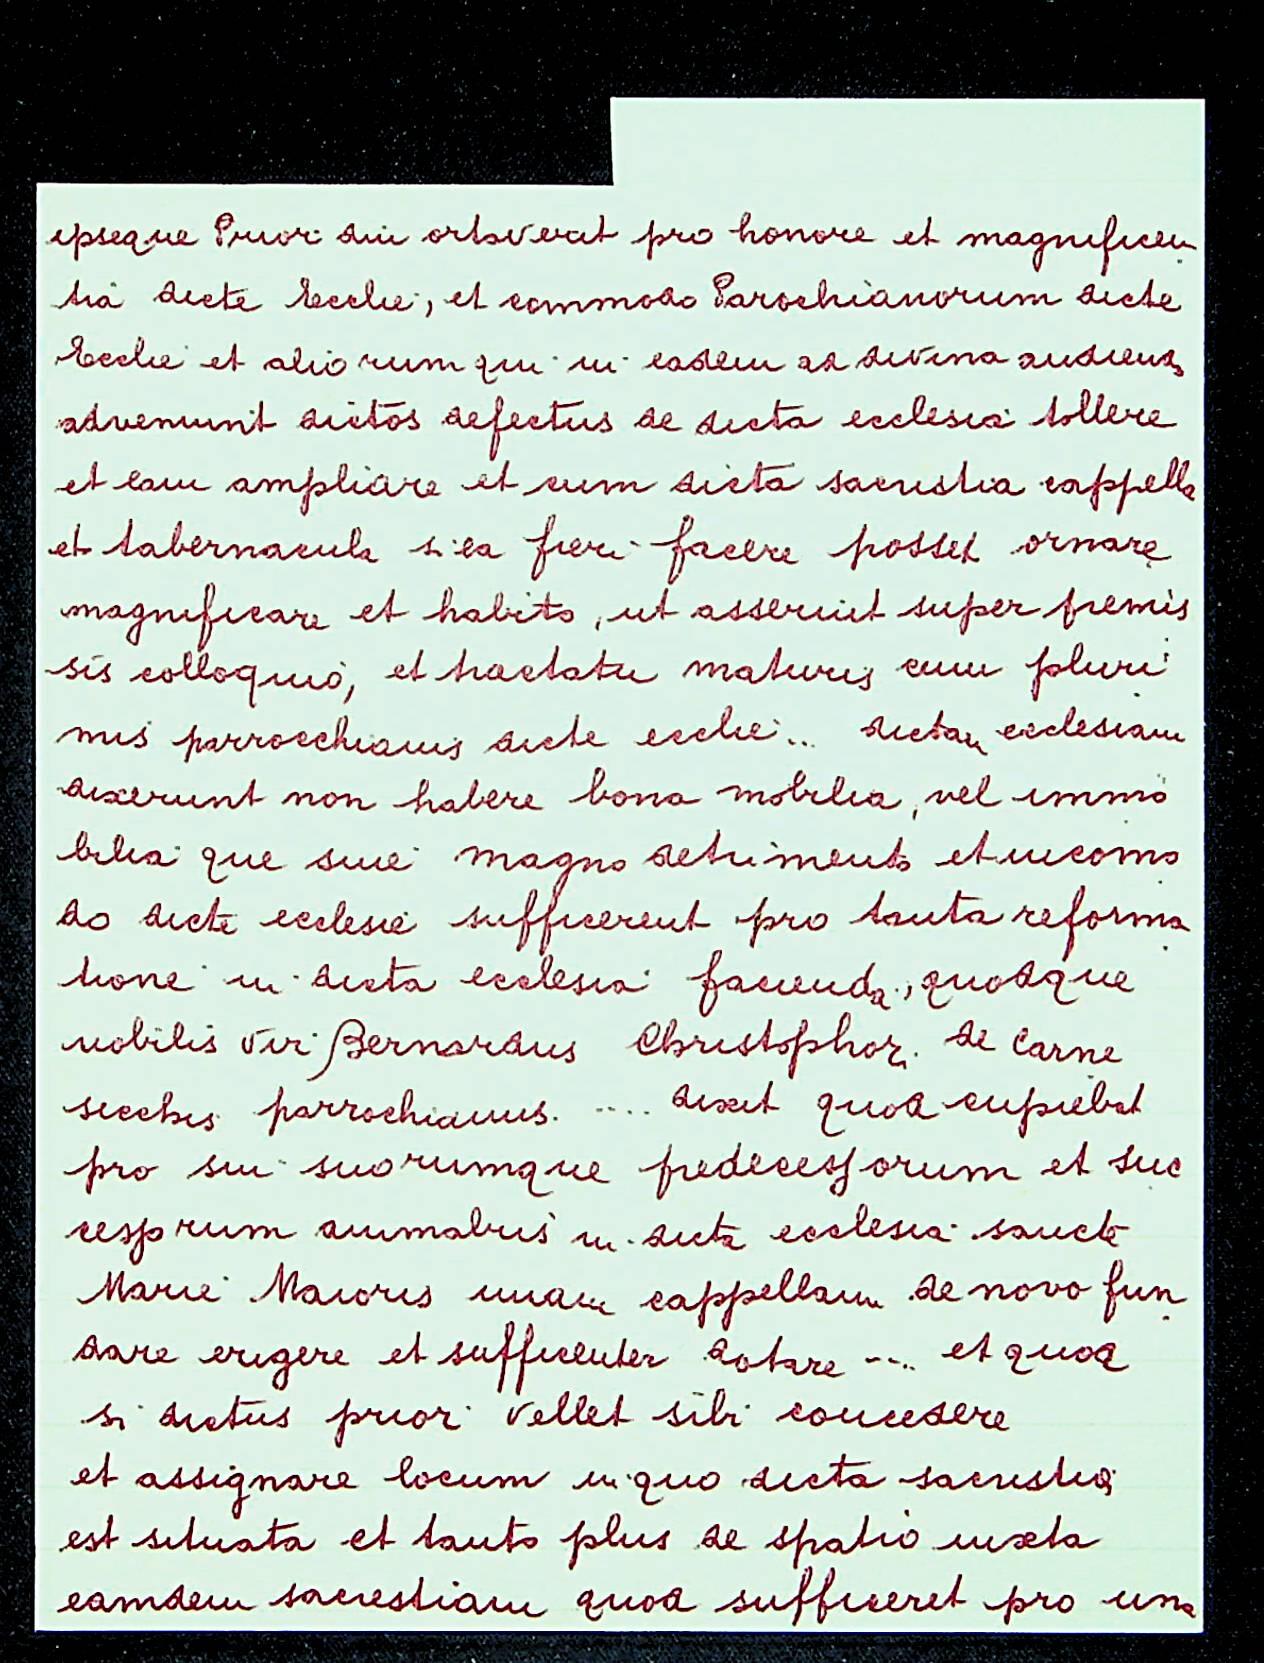 ipseque Prior diu ortaverat pro honore et magnificen
tia dicte Ecclie, et commodo Parochianorum dicte
Ecclie et aliorum qui in eadem ad divina audiend
adveniunt dictos defectus de dicta ecclesia tollere
et eam ampliare et cum dicta sacristia cappella
et tabernacula si ea fieri facere posset ornare
magnificare et habito, ut asseruit super premis
sis colloquio, et tractatu maturis cum pluri
mis parrocchianis dicte ecclie... dictam ecclesiam
dixerunt non habere bona mobilia, vel immo
bilia que sine magno detrimento et incomo
do dicte ecclesie sufficerent pro tanta reforma
tione in dicta ecclesia facienda, quodque
nobilis vir Bernardus Christophor. de Carne
secchis parrochianus. .... dixit quod cupiebat
pro sui suorumque predecessorum et suc
cessorum animabus in dicta ecclesia sancte
Marie Maioris unam cappellam de novo fun
dare erigere et sufficienter dotare .... et quod
si dictus prior vellet sibi concedere
et assignare locum in quo dicta sacristia
est situata et tanto plus de spatio iuxta
eamdem sacrestiam quod sufficeret pro una